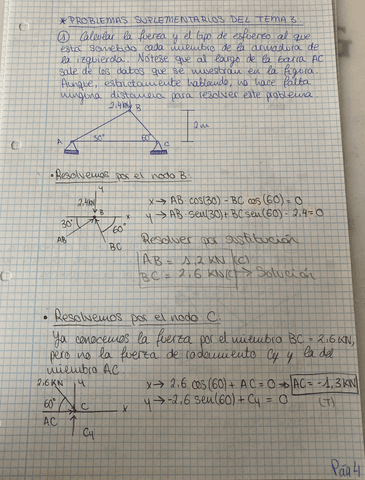 * PROBLEMAS SUPLEMENTARIOS DEL TEMA 3
① Calcular la fuerza y el tipo de esfuerzo al que
está sometido cada miembro de la armadura de
la izquierda. Nótese que al largo de la barra AC
sale de los datos que se muestran en la figura
Aunque, estrictamente hablando, no hace falta
ninguna distancia para resolver este problema
2.4kN
B
2m
A 30° 60° C
• Resolvemos por el nodo B:
y
2.4kN
B x
30° 60°
AB BC
x → AB·cos(30) - BC cos(60) = 0
y → AB·sen(30) + BC sen(60) - 2.4 = 0
Resolver por sustitución
AB = 1,2 KN (C)
BC = 2,6 KN (C) → Solución
• Resolvemos por el nodo C:
Ya conocemos la fuerza por el miembro BC = 2.6 KN,
pero no la fuerza de rodamiento Cy y la del
miembro AC
2,6 KN y
60° C x
AC
Cy
x → 2,6 cos(60) + AC = 0 → AC = -1,3KN
(T)
y → -2,6 sen(60) + Cy = 0
Pág 4